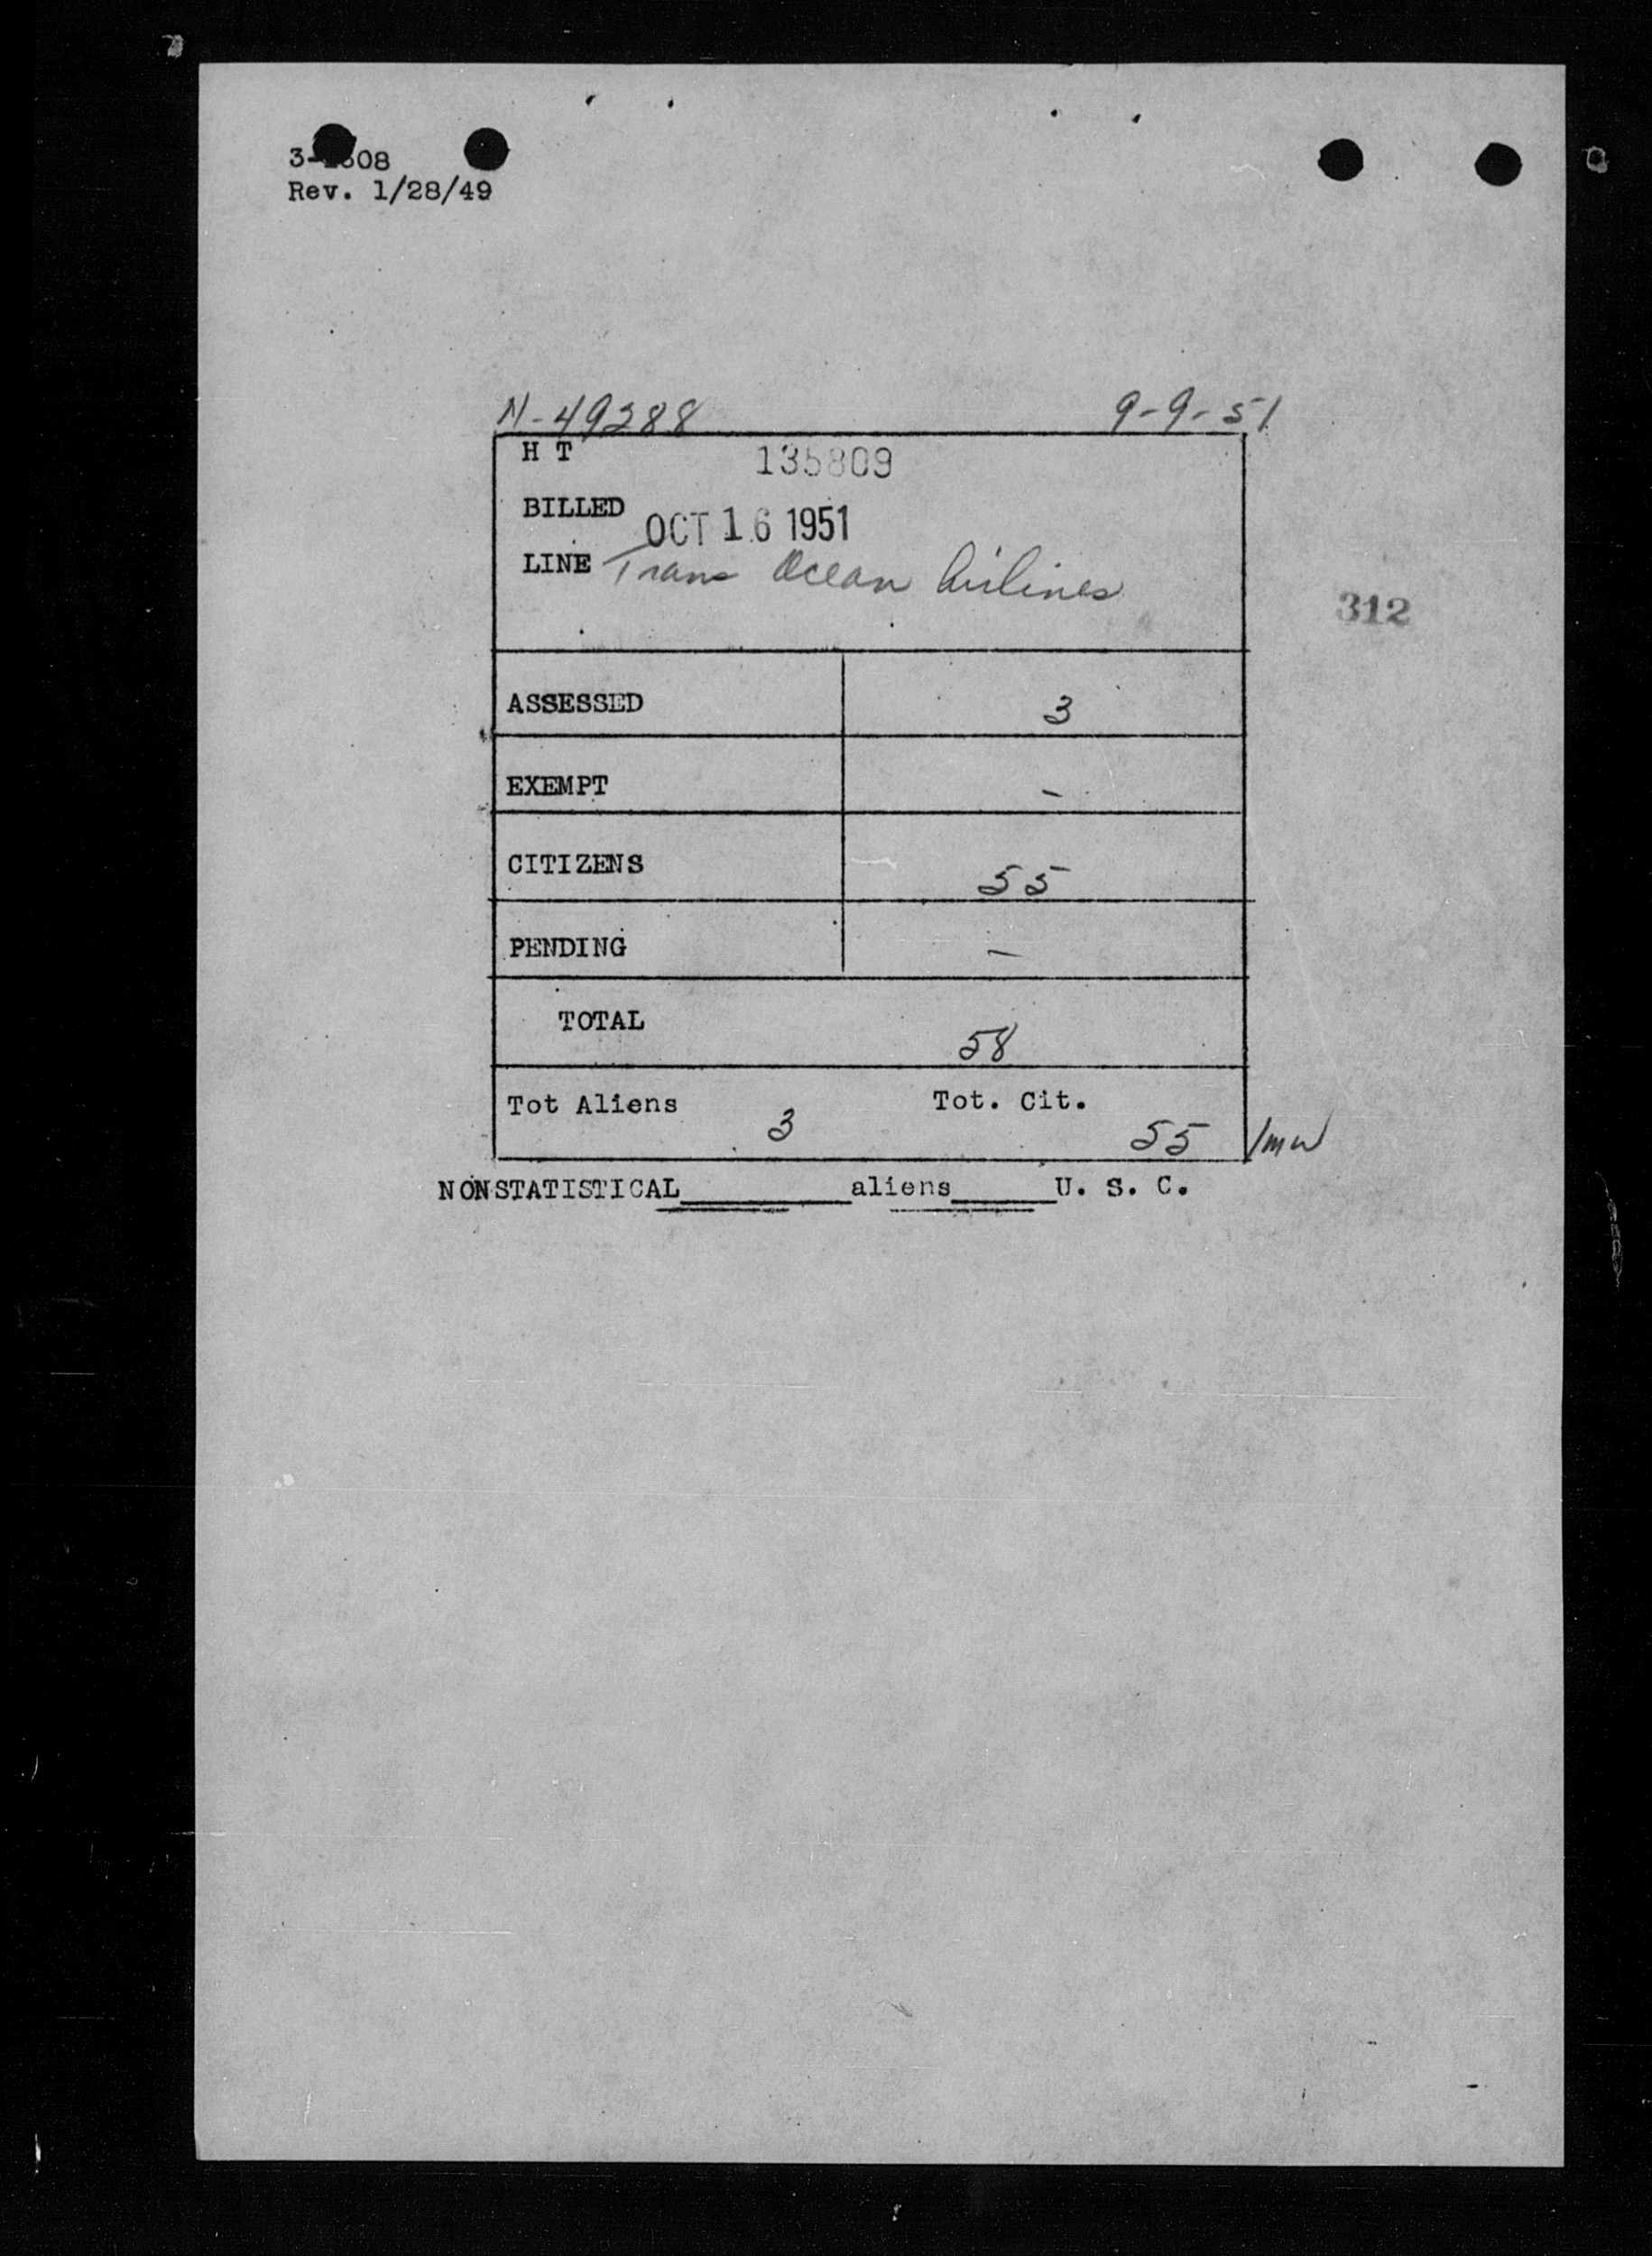 Rev. 1/28/49
N-49288 9-9-51
H T 135809
BILLED OCT 16 1951
LINE Trans Ocean Airlines
312
ASSESSED 3
EXEMPT -
CITIZENS 55
PENDING -
TOTAL 58
Tot Aliens 3 Tot. Cit. 55 /mw
NONSTATISTICAL________aliens_____U. S. C.